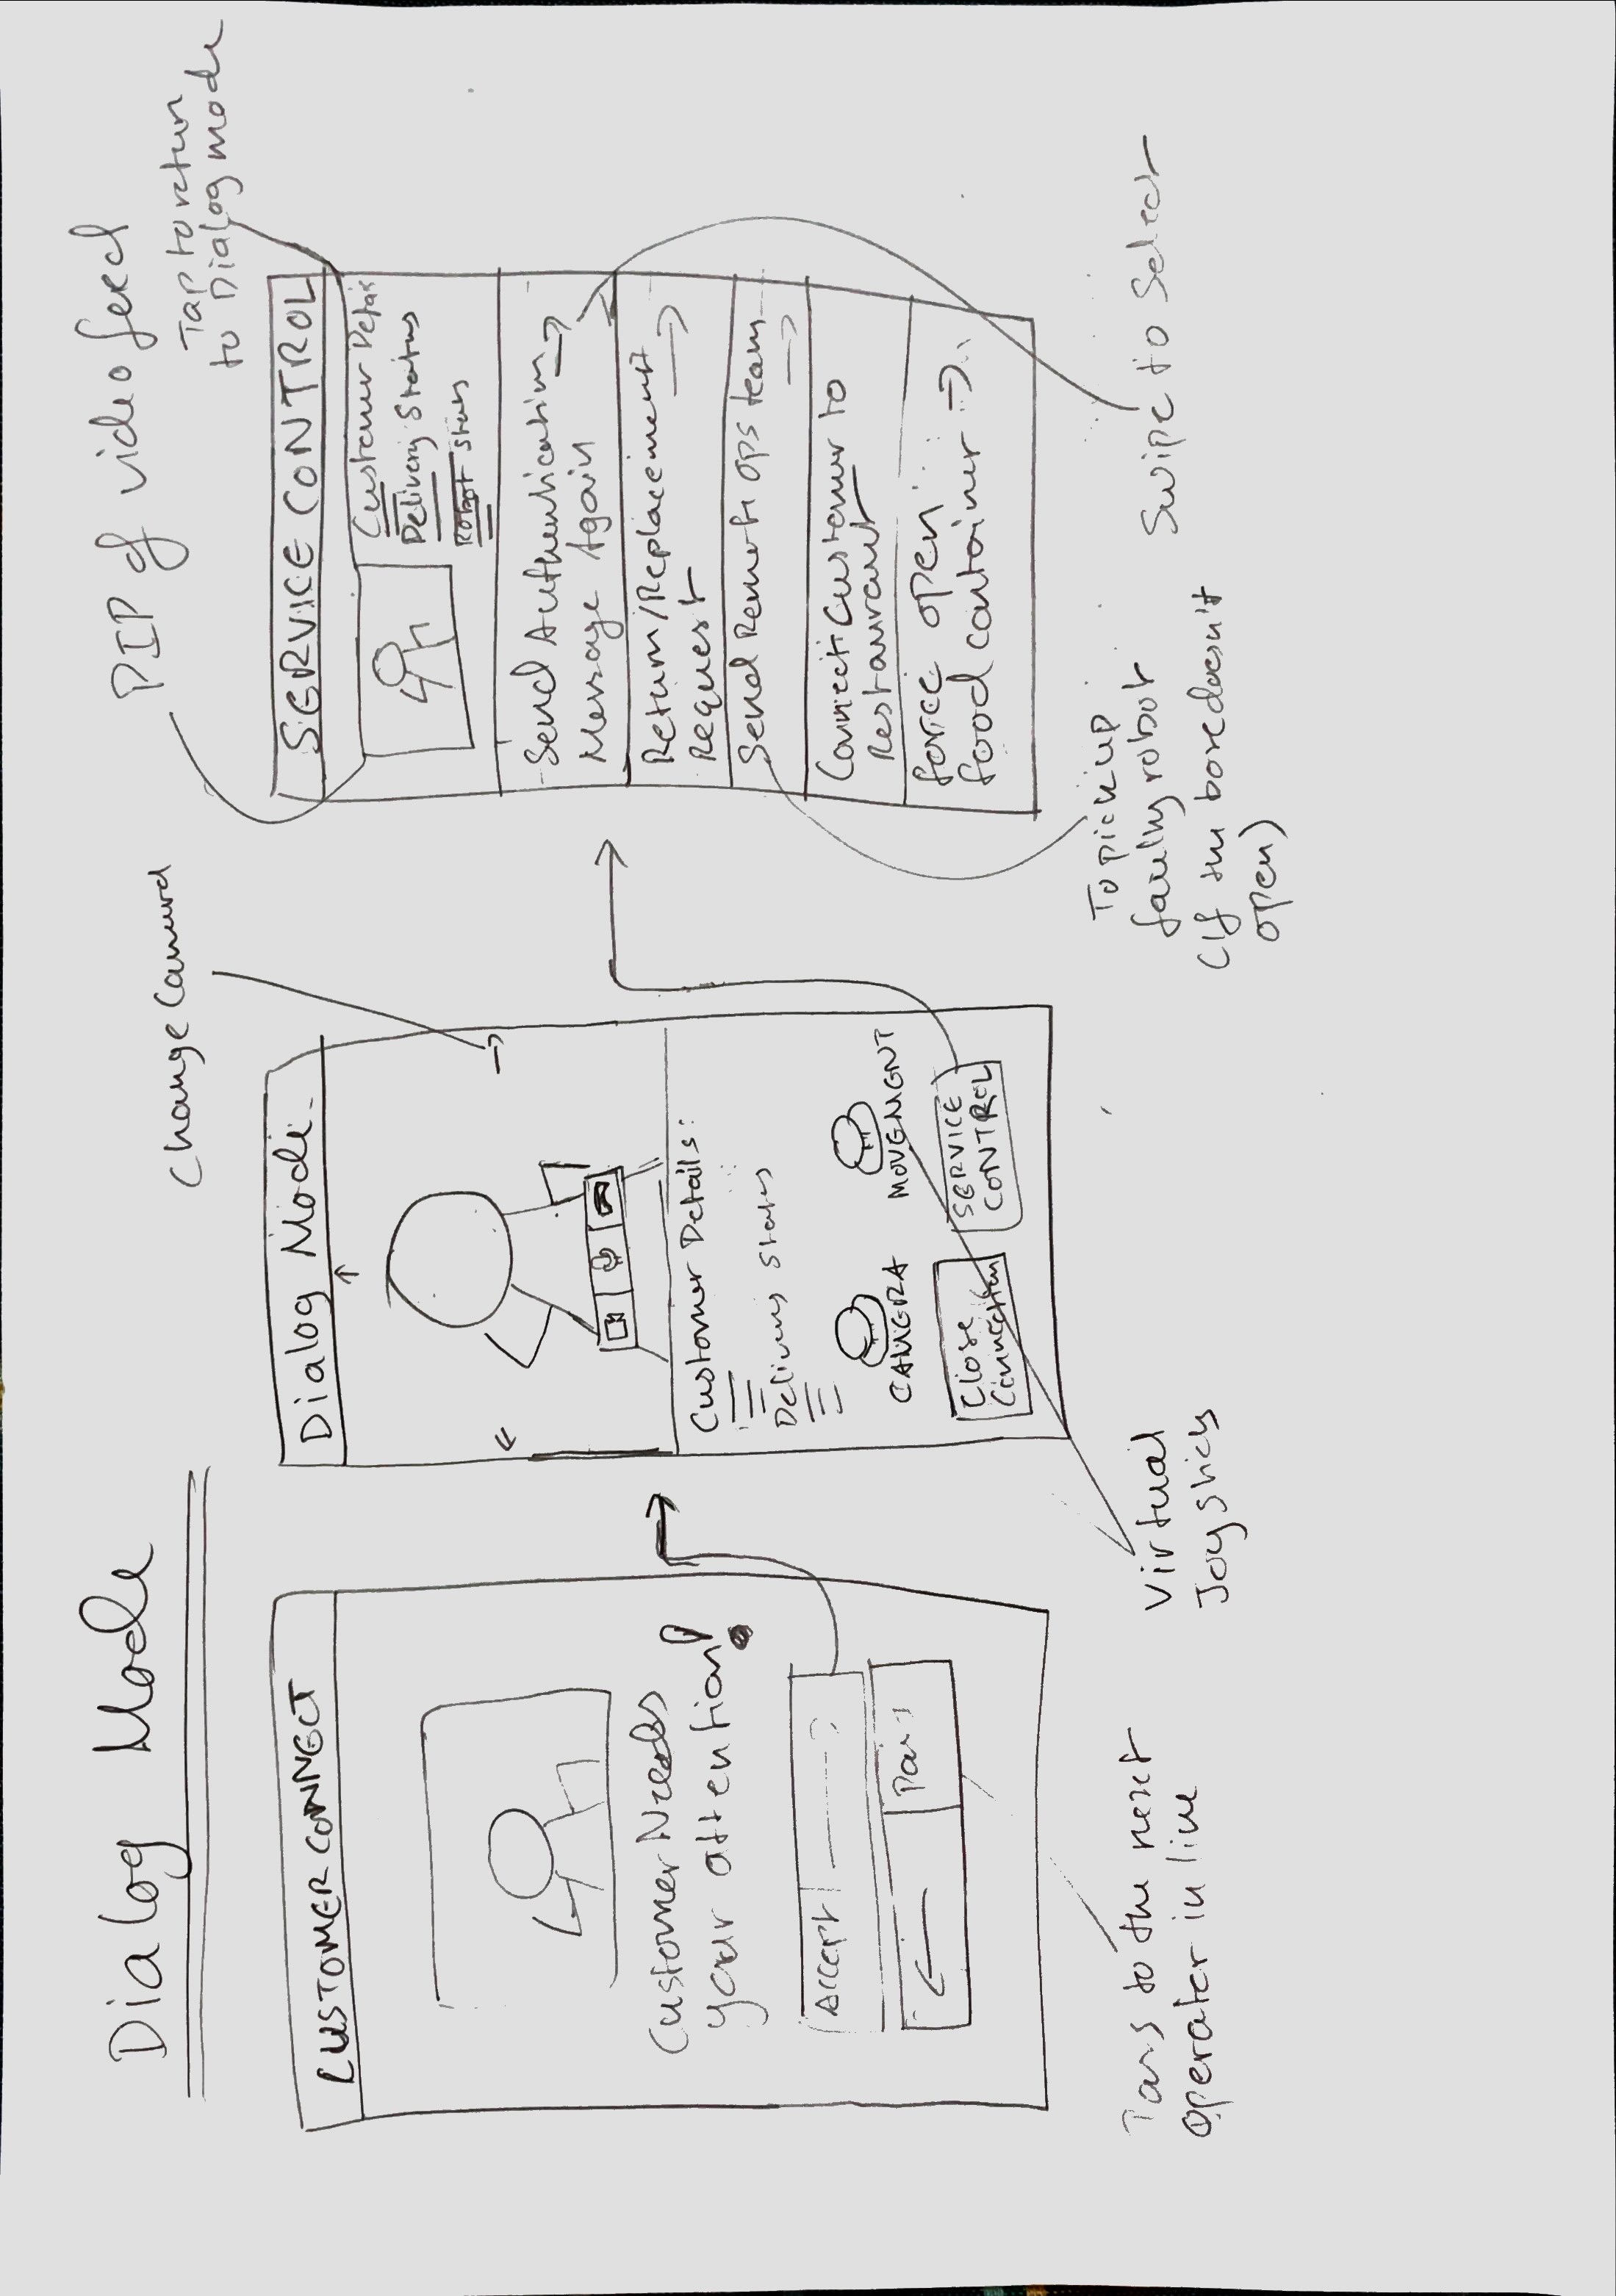 Dialog Mode
CUSTOMER CONNECT
Customer Needs
your attention!
Accept
Pass
Pass to the next
operator in line
Change Camera
Dialog Mode
Customer Details:
Delivery Status
CAMERA
MOVEMENT
Close
Connection
SERVICE
CONTROL
Virtual
Joysticks
PIP of video feed
Tap to return
to Dialog mode
SERVICE CONTROL
Customer Details
Delivery Status
Robot Status
Send Authentication
Message Again
Return/Replacement
Request
Send Remote Ops team
Connect Customer to
Restaurant
force open
food container
To pickup
faulty robot
(If the box doesn't
open)
Swipe to Select